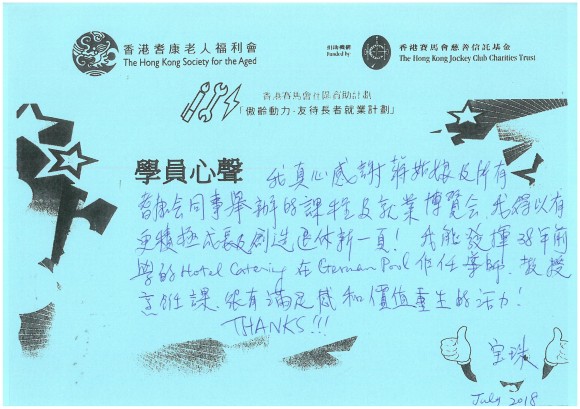 香港耆康老人福利會
The Hong Kong Society for the Aged
捐助機構
Funded by
香港賽馬會慈善信託基金
The Hong Kong Jockey Club Charities Trust
香港賽馬會社區資助計劃
「傲齡動力‧友待長者就業計劃」
學員心聲 我真心感謝姑娘及所有
耆康会同事舉辦的課程及就業博覽会. 我得以有
更積極成長及創造退休新一頁! 我能發揮38年前
學的Hotel Catering 在German Pool 作任導師. 教授
烹飪課. 很有滿足感和價值重生的活力!
THANKS!!!
宝珠
July 2018